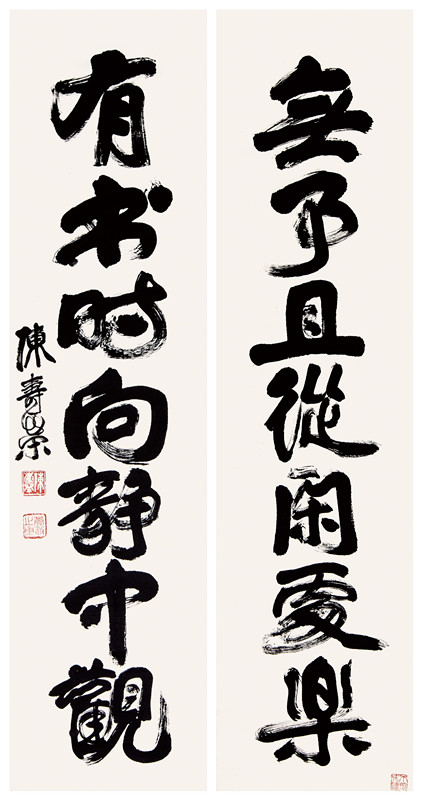 無事且從閑處樂
有书时向靜中觀
陳壽榮